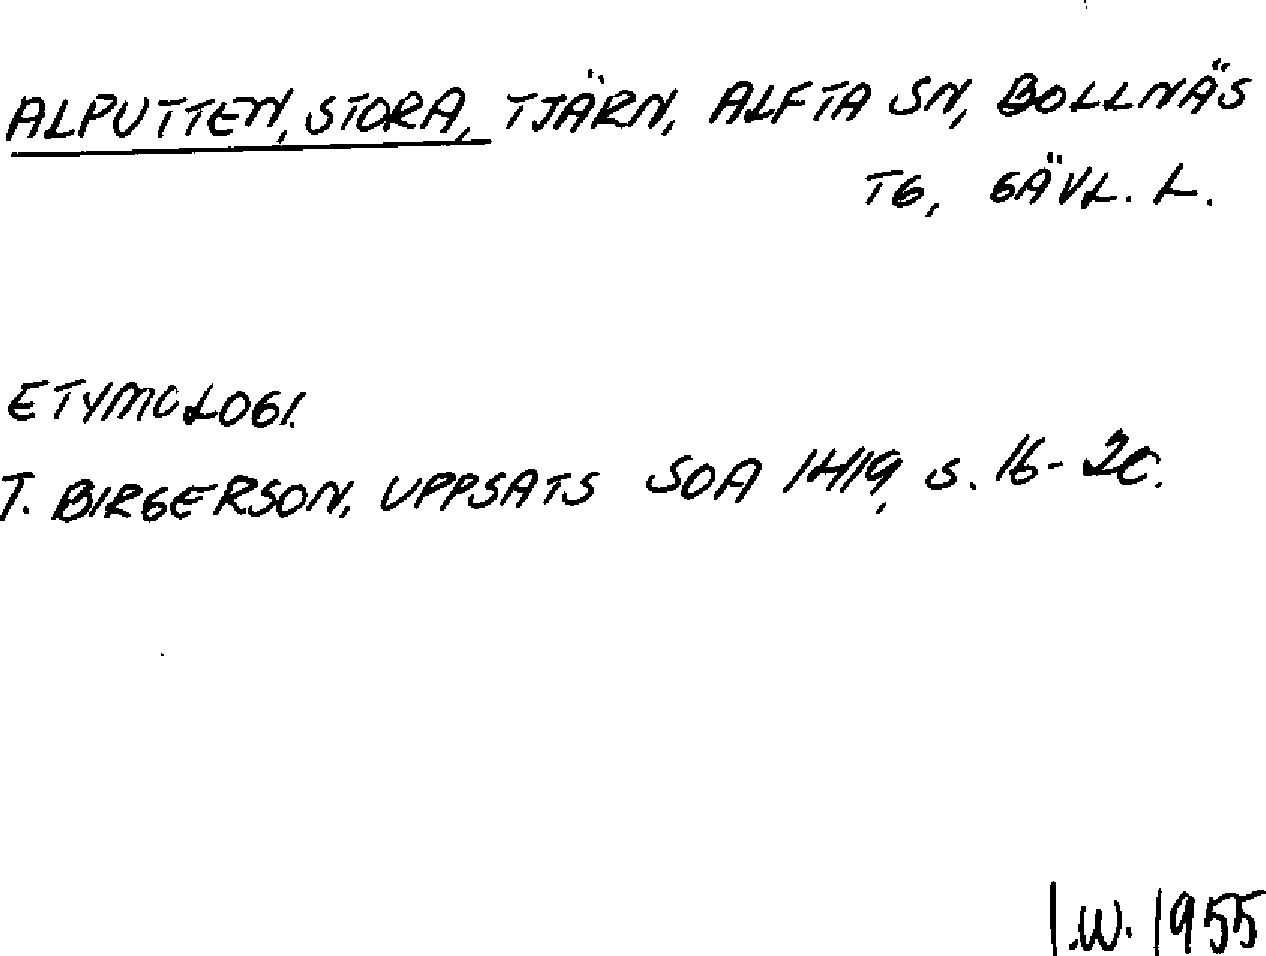 ALPUTTEN, STORA, TJÄRN, ALFTA SN, BOLLNÄS
TG, GÄVL. L.
ETYMOLOGI.
T. BIRGERSON, UPPSATS SOA 1419, S. 16-20.
I.W. 1955